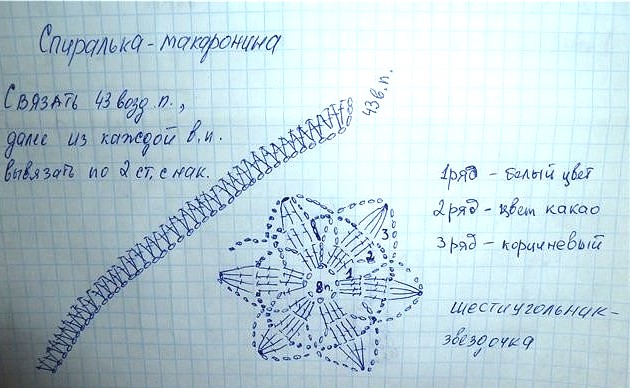 Спиралька-макоронина
Связать 43 возд. п.,
далее из каждой в.п.
вывязать по 2 ст. с нак.
43 в.п.
1 ряд - белый цвет
2 ряд - цвет какао
3 ряд - коричневый
шестиугольник-
звездочка
3
2
1
8п.